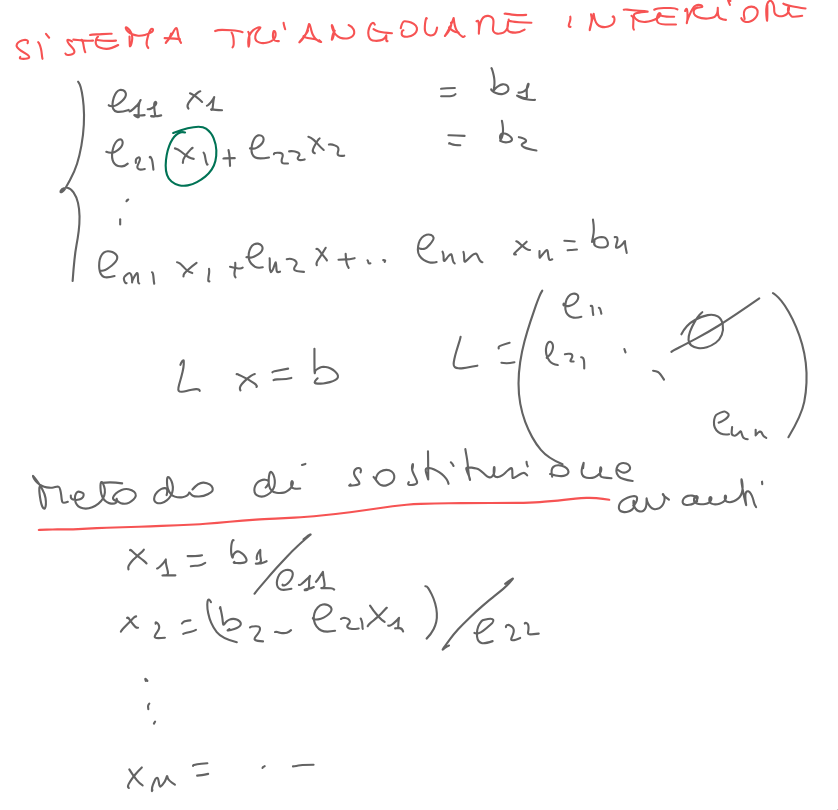 SISTEMA TRIANGOLARE INFERIORE
l₁₁ x₁ = b₁
l₂₁ x₁ + l₂₂ x₂ = b₂
⋮
lₙ₁ x₁ + lₙ₂ x + .. lₙₙ xₙ = bₙ
L x = b L = ( l₁₁ l₂₁ ⋱ ∅ lₙₙ )
Metodo di sostituzione
avanti
x₁ = b₁/l₁₁
x₂ = (b₂ - l₂₁x₁)/l₂₂
⋮
xₙ = . -